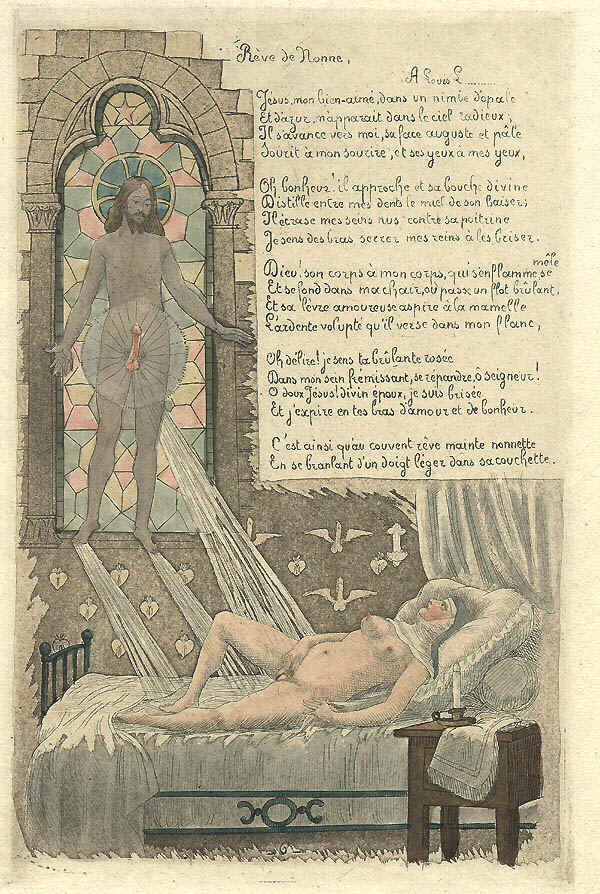 Rêve de Nonne,
A Louis L..........
Jésus, mon bien-aimé, dans un nimbe d'opale
Et d'azur, m'apparait dans le ciel radieux;
Il s'avance vers moi, sa face auguste et pâle
Sourit à mon sourire, et ses yeux à mes yeux,
Oh bonheur! il approche et sa bouche divine
Distille entre mes dents le miel de son baiser;
Il écrase mes seins nus contre sa poitrine
Je sens des bras serrer mes reins à les briser.
Dieu! son corps à mon corps, qui s'enflamme, se mêle
Et se fond dans ma chair, où passe un flot brûlant,
Et sa lèvre amoureuse aspire à la mamelle
L'ardente volupté qu'il verse dans mon flanc,
Oh délire! je sens ta brûlante rosée
Dans mon sein frémissant, se répandre, ô seigneur!
O doux Jésus! divin époux, je suis brisée
Et j'expire en tes bras d'amour et de bonheur.
C'est ainsi qu'au couvent rêve mainte nonnette
En se branlant d'un doigt léger dans sa couchette.
6